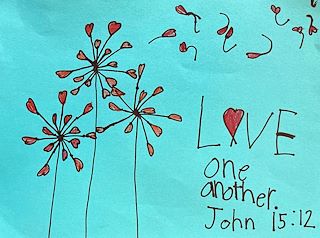 LOVE
one
another.
John 15:12